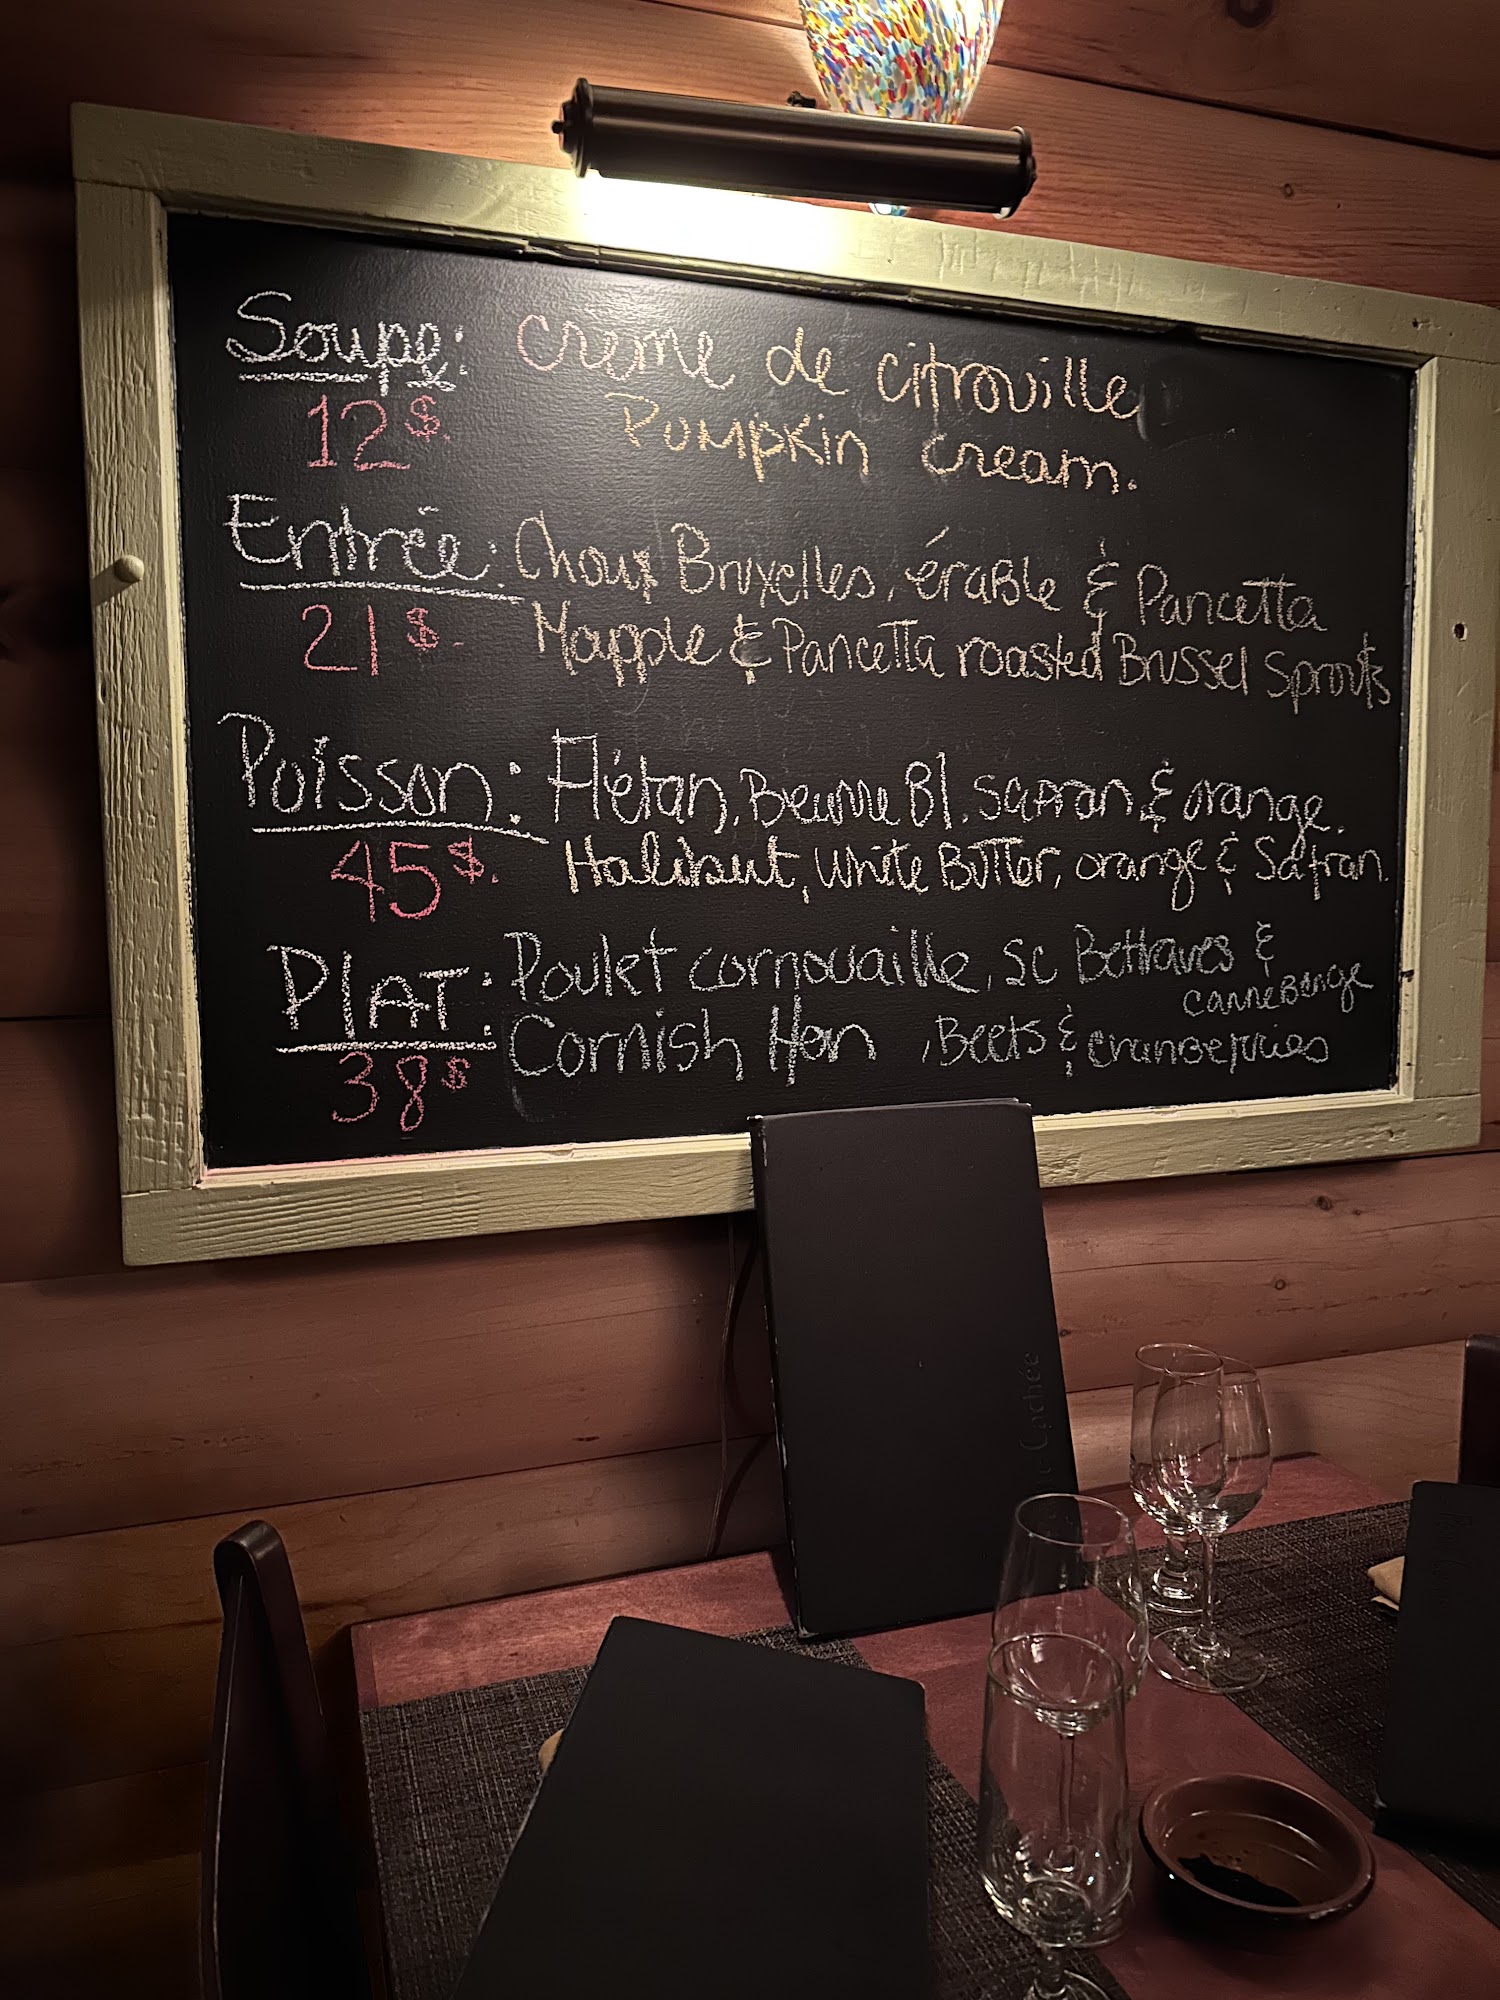 Soupe: Creme de citrouille
12$. Pumpkin cream.
Entrée: Choux Bruxelles, érable & Pancetta
21$. Mapple & Pancetta roasted Brussel Sprouts
Poisson: Flétan, Beurre Bl. Safran & orange.
45$. Halibut, white Butter, orange & Safran.
PLAT: Poulet cornouaille, sc Bettraves &
canneberge
38$ Cornish Hen, Beets & cranberries
Cachée